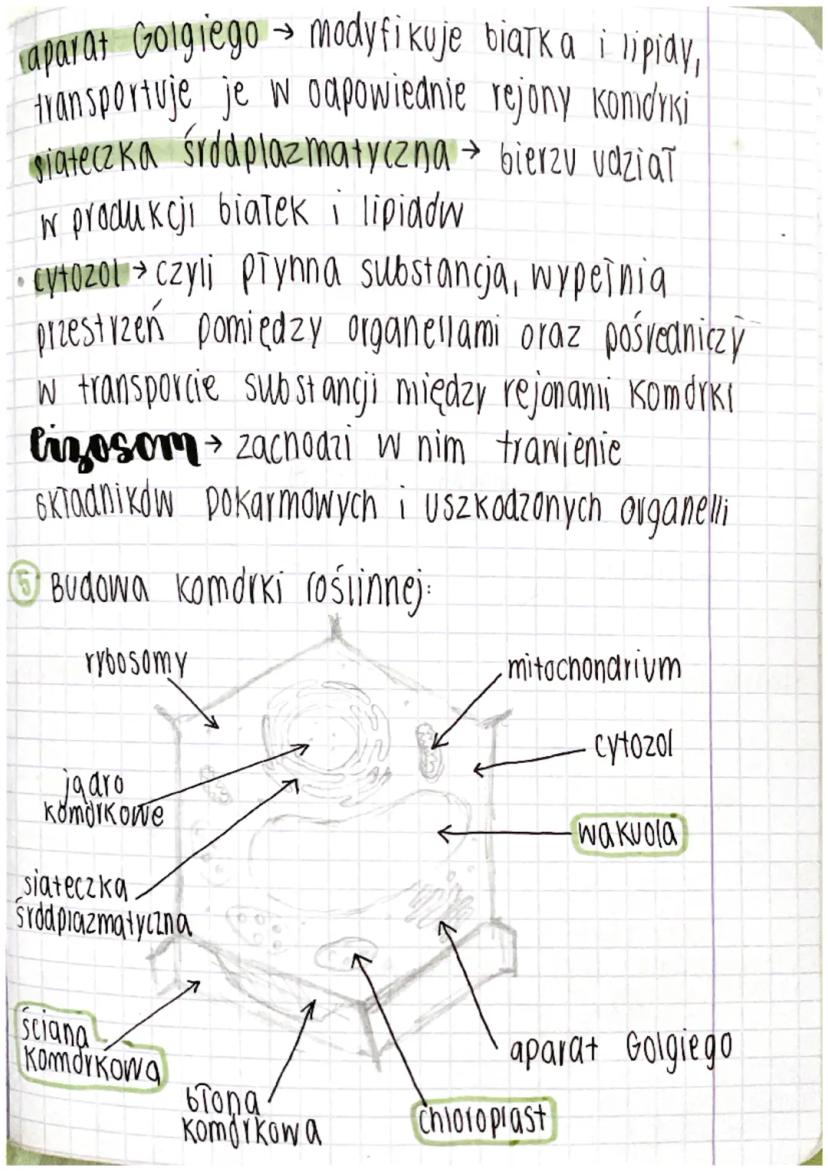 aparat Golgiego → modyfikuje białka i lipidy,
transportuje je w odpowiednie rejony komórki
siateczka śródplazmatyczna → bierzu udział
w produkcji białek i lipidów
• cytozol → czyli płynna substancja, wypełnia
przestrzeń pomiędzy organellami oraz pośredniczy
w transporcie substancji między rejonami komórki
lizosom → zachodzi w nim trawienie
składników pokarmowych i uszkodzonych organelli
5 Budowa komórki roślinnej:
rybosomy
mitochondrium
cytozol
jądro
komórkowe
wakuola
siateczka
śródplazmatyczna
ściana
komórkowa
aparat Golgiego
błona
komórkowa
chloroplast